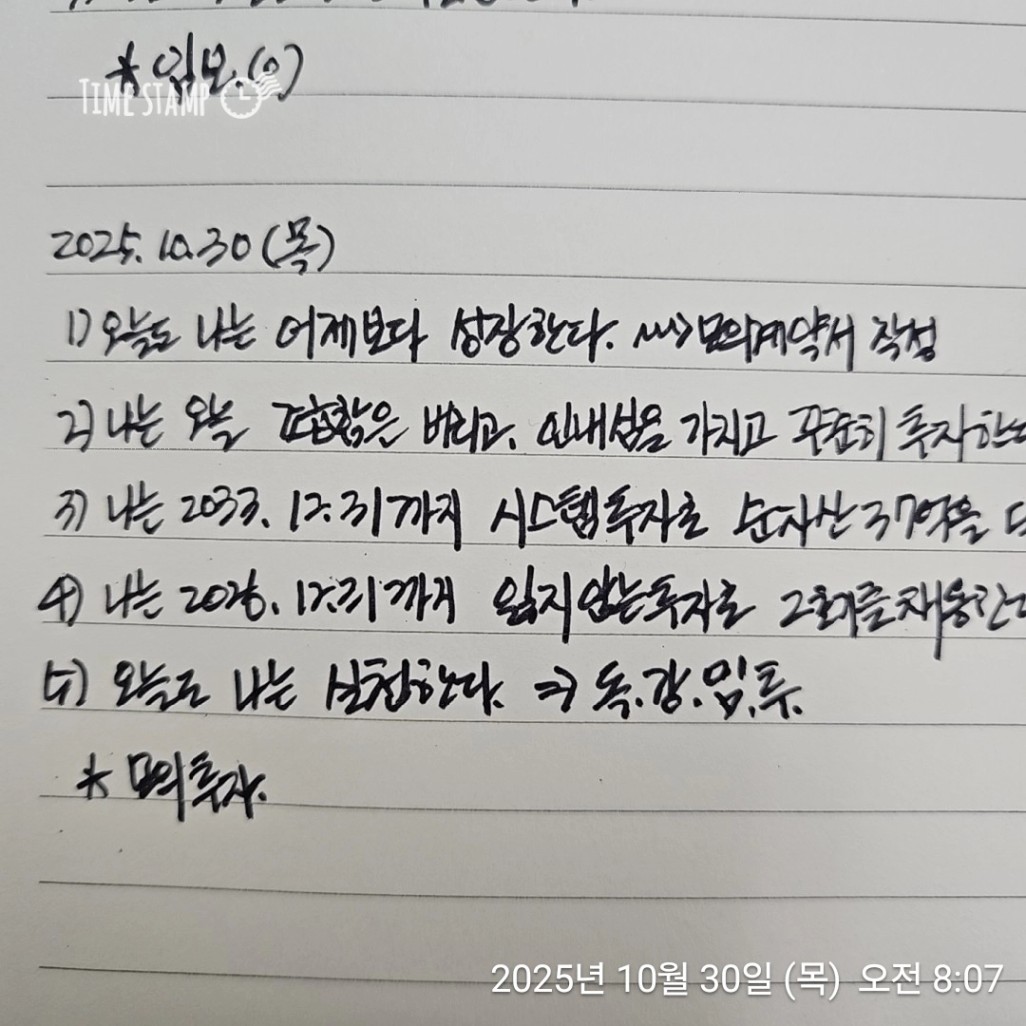 * 임보.(0)
TIME STAMP
2025. 10.30 (목)
1) 오늘도 나는 어제보다 성장한다. ⇒ 모의계약서 작성
2) 나는 오늘 조급함은 버리고, 인내심을 가지고 꾸준히 투자한
3) 나는 2033. 12.31까지 시스템투자로 순자산 37억을
4) 나는 2026. 12.31까지 잃지 않는 투자로
5) 오늘도 나는 실천한다. ⇒ 독.강.임.투.
* 모의투자.
2025년 10월 30일 (목) 오전 8:07